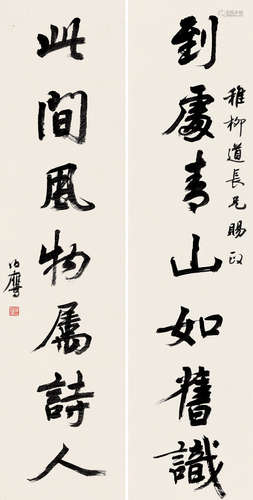 到處青山如舊識
稚柳道長兄賜正
此間風物屬詩人
伯鷹